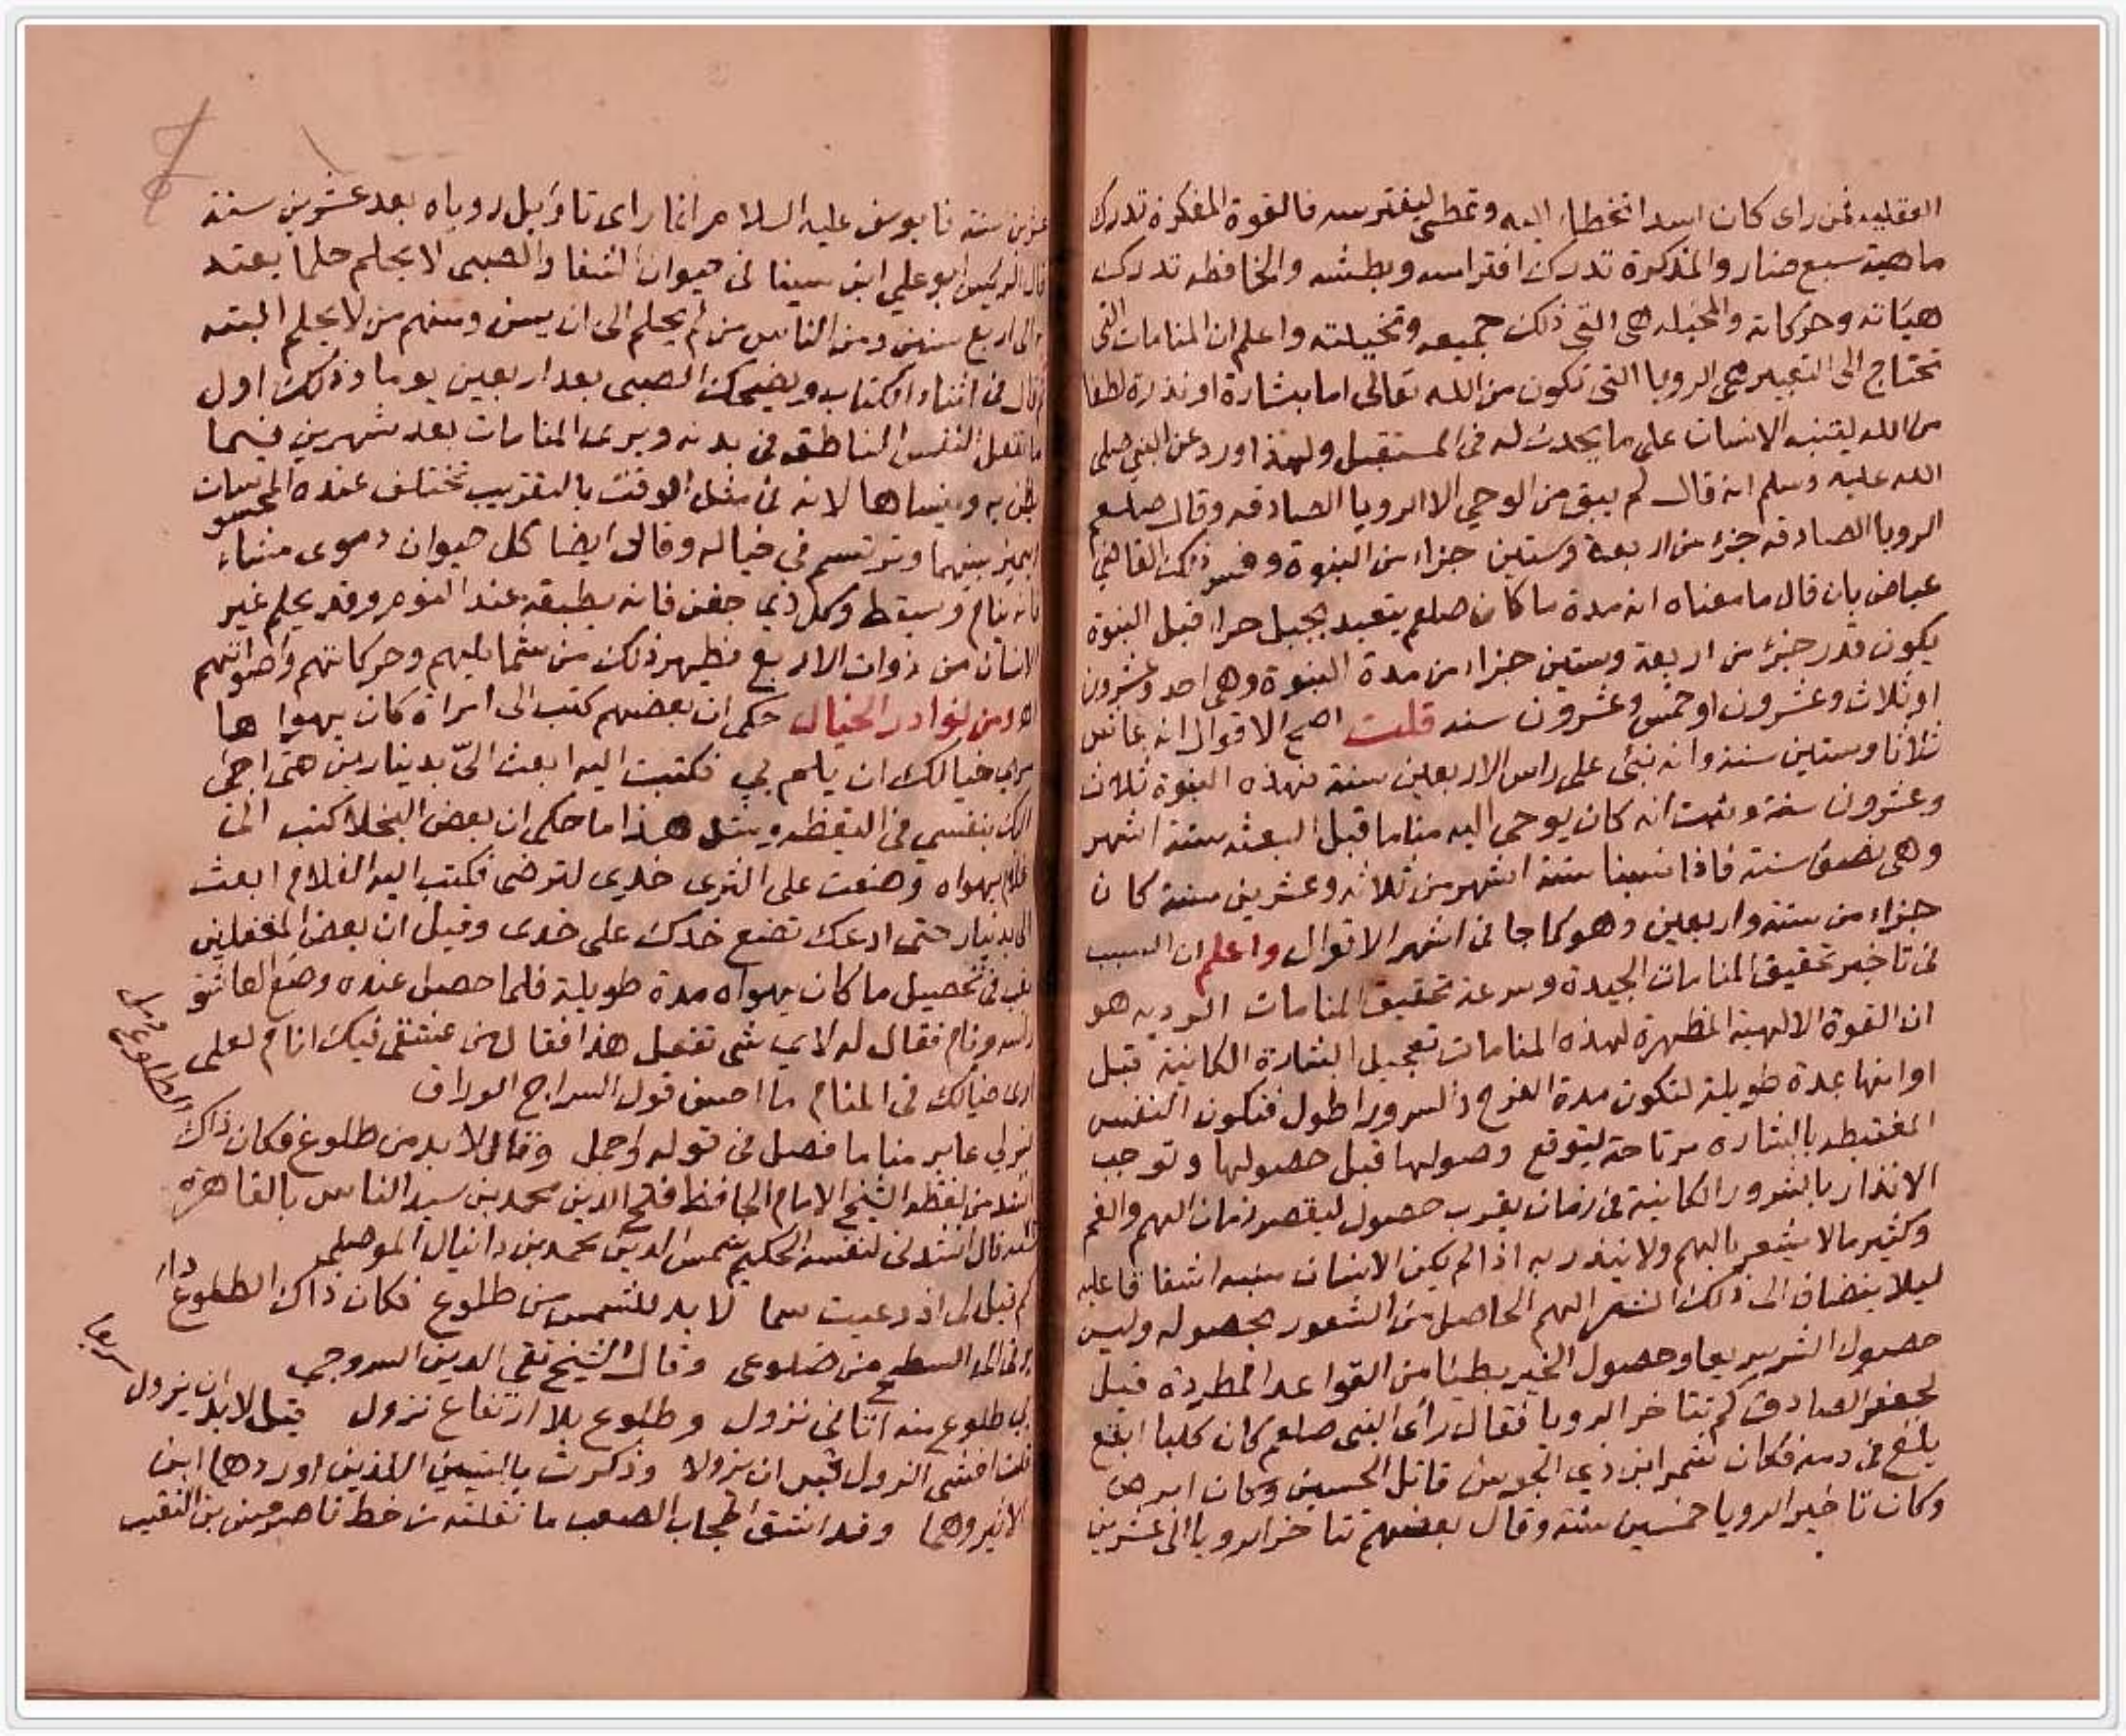 العقليه فمن راى كان اسدا تخطا اليه وتمطى ليفترسه فالقوة المفكرة تدرك
ماهية سبع ضار والمذكرة تدرك افتراسه وبطشه والحافظه تدرك
هيئاته وحركاته والمخيله هى التى ذلك جميعه وتخيلته واعلم ان المنامات التى
تحتاج الى التعبير هى الرويا التى تكون من الله تعالى اما بشارة او نذرة لطفا
من الله ليتنبه الانسان على ما يحدث له فى المستقبل ولهذا ورد عن النبي صلى
الله عليه وسلم انه قال لم يبق من الوحي الا الرويا الصادقه وقال صلعم
الرويا الصادقه جزء من اربعة وستين جزاء من النبوة وفسر ذلك القاضي
عياض بان قال ما معناه انه مدة ما كان صلعم يتعبد بجبل حراء قبل النبوة
يكون قدر جزء من اربعة وستين جزاء من مدة النبوة وهى احد وعشرون
او ثلاث وعشرون او خمس وعشرون سنه قلت اصح الاقوال انه عاش
ثلاثا وستين سنة وانه نبئ على راس الاربعين سنة فهذه النبوة ثلاث
وعشرون سنة وثبت انه كان يوحى اليه مناما قبل البعثه ستة اشهر
وهى نصف سنة فاذا نسبنا ستة اشهر من ثلاثه وعشرين سنة كان
جزاء من ستة واربعين وهو كما جا فى اشهر الاقوال واعلم ان السبب
فى تاخير تحقيق المنامات الجيدة وسرعة تحقيق المنامات الرديه هو
ان القوة الالهية المظهرة لهذه المنامات تعجيل البشارة الكاينة قبل
اوانها بمدة طويلة لتكون مدة الفرح والسرور اطول فتكون النفس
المغتبطه بالبشاره مرتاحة ليتوقع وصولها قبل حصولها وتوجب
الانذار بالشرور الكاينة فى زمان يقرب حصول ليقصر زمان الهم والغم
وكثير ما لا يشعر بالهم ولا ينذر به اذا لم يكن الانسان سبه اشفاقا عليه
ليلا ينضاف الى ذلك الشر الهم الحاصل من الشعور بحصوله وليس
حصول الشر سريعا وحصول الخير بطيئا من القواعد المطرده قيل
لجعفر الصادق كم تتاخر الرويا فقال راى النبى صلعم كان كلبا ابقع
يلغ فى دمه فكان شمر ابن ذي الجوشن قاتل الحسين وكان ابرص
وكان تاخير الرويا خمسين سنه وقال بعضهم تتاخر الرويا الى عشرين
عشرين سنة فابوسف عليه السلام انما راى تاويل روياه بعد عشرين سنة
قال الرييس ابو علي ابن سينا فى حيوان الشفا والصبى لا يحلم حلما يعتد
الى اربع سنين ومن الناس من لم يحلم الى ان يسن ومنهم من لا يحلم البته
وقال فى اثناء الكتاب ويضحك الصبى بعد اربعين يوما وذلك اول
ما تفعل النفس الناطقه فى بدنه ويرى المنامات بعد شهرين فيما
يظن به وينساها لانه فى مثل الوقت بالتقريب تختلف عنده المحسوسات
يميز بينهما وترتسم فى خياله وقال ايضا كل حيوان دموى مشاء
فانه ينام وسيقط وكل ذي جفن فانه يطبقه عند النوم وقد يحلم غير
الانسان من ذوات الاربع فظهر ذلك من شمايلهم وحركاتهم واصواتهم
اه ومن نوادر الخيال حكى ان بعضهم كتب الى امراة كان يهواها
مري خيالك ان يلم بي فكتبت اليه ابعث الىّ بدينارين حتى اجى
اليك بنفسي فى اليقظه ومثل هذا ما حكى ان بعض البخلا كتب الى
غلام يهواه وضعت على الثرى خدى لترضى فكتب اليه الغلام ابعث
الى بدينار حتى ادعك تضع خدك على خدى وقيل ان بعض المغفلين
تعب فى تحصيل ما كان يهواه مدة طويلة فلما حصل عنده وضع العاشق
راسه ونام فقال له لاي شى تفعل هذا فقال من عشقى فيك انام لعلى
ارى خيالك فى المنام ما احسن قول السراج الوراق
غبر لي عابر مناما فصل فى قوله واجمل وقال لا بد من طلوع فكان ذاك الطلوع دمل
انشد من لفظه الشيخ الامام الحافظ فتح الدين محمد بن سيد الناس بالقاهرة
قال انشدنى لنفسه الحكيم شمس الدين محمد بن دانيال الموصلى
كم قيل لى اذ دعيت شمسا لا بد للشمس من طلوع فكان ذاك الطلوع دار
رقى الى السطح من ضلوعى وقال الشيخ تقى الدين السروجى
لي طلوع منه اتانى نزول وطلوع بلا ارتفاع نزول قيل لا بد ان يزول سريعا
قلت اخشى الزول قبل ان يزولا وذكرت بالبيتين اللذين اوردهما ابن
الاثير وهما وقد انشق الحجاب الصعب ما نقلته من خط ناصر بن النقيب